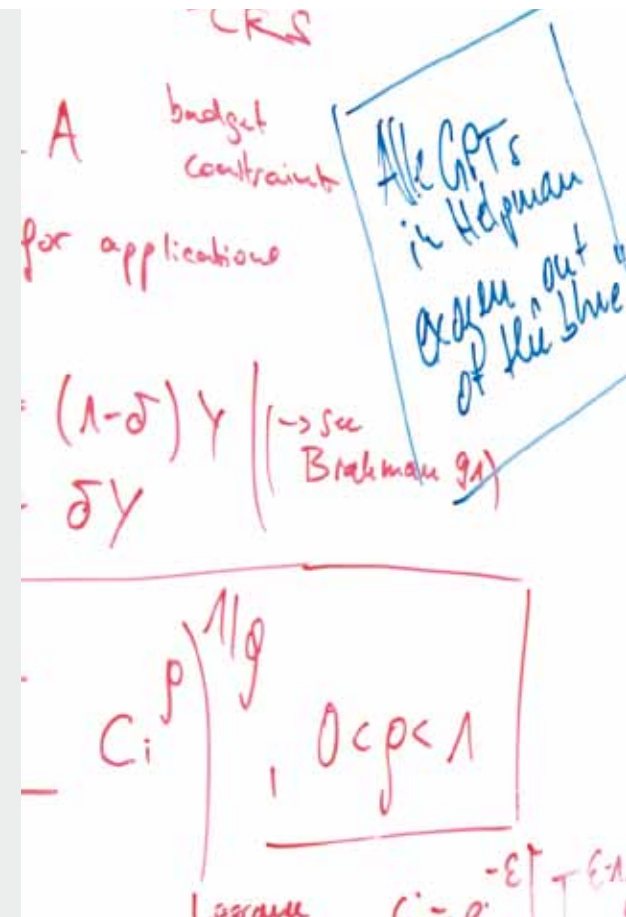 CRS
A budget
constraint
for applications
Alle GPTs
in Helpman
exogen out
of the blue"
= (1-δ) Y (-> see
Brakman 91)
= δY
Ci^ρ)^1/ρ , 0<ρ<1
-ε
ε-1